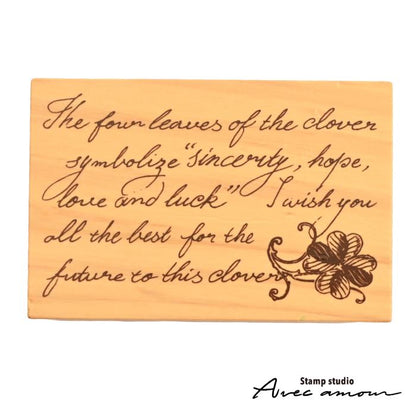 The four leaves of the clover
symbolize "sincerity, hope,
love and luck" I wish you
all the best for the
future to this clover
Stamp studio
Avec amour